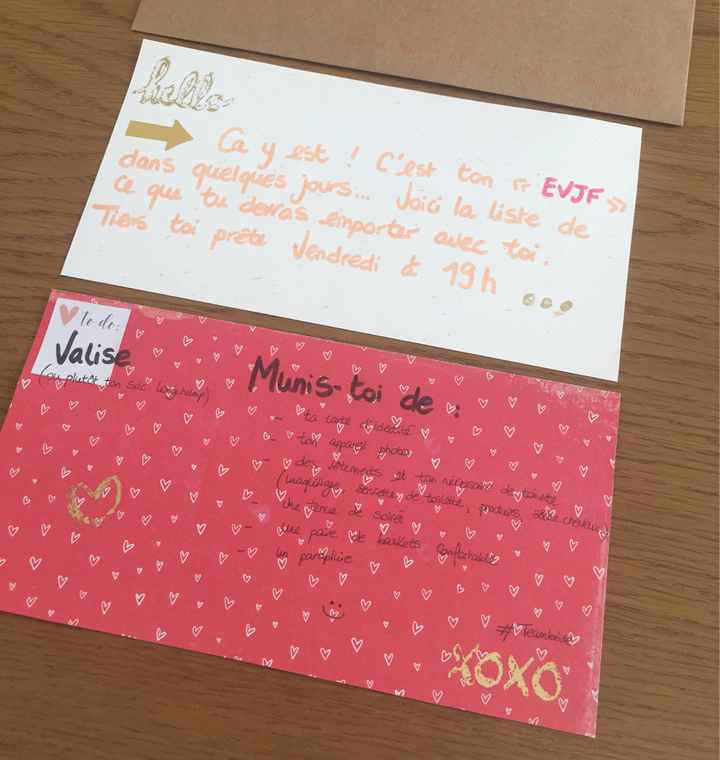 hello
Ca y est ! C'est ton « EVJF »
dans quelques jours... Voici la liste de
ce que tu devras emporter avec toi.
Tiens toi prête Vendredi à 19h ...
to do:
Valise
(ou plutôt ton sac longchamp)
Munis-toi de :
- ta carte d'identité
- ton appareil photo
- des vêtements et ton nécessaire de toilette
(maquillage, serviette de toilette, produits, sèche cheveux)
- une tenue de soirée
- une paire de baskets confortables
- un parapluie
XOXO